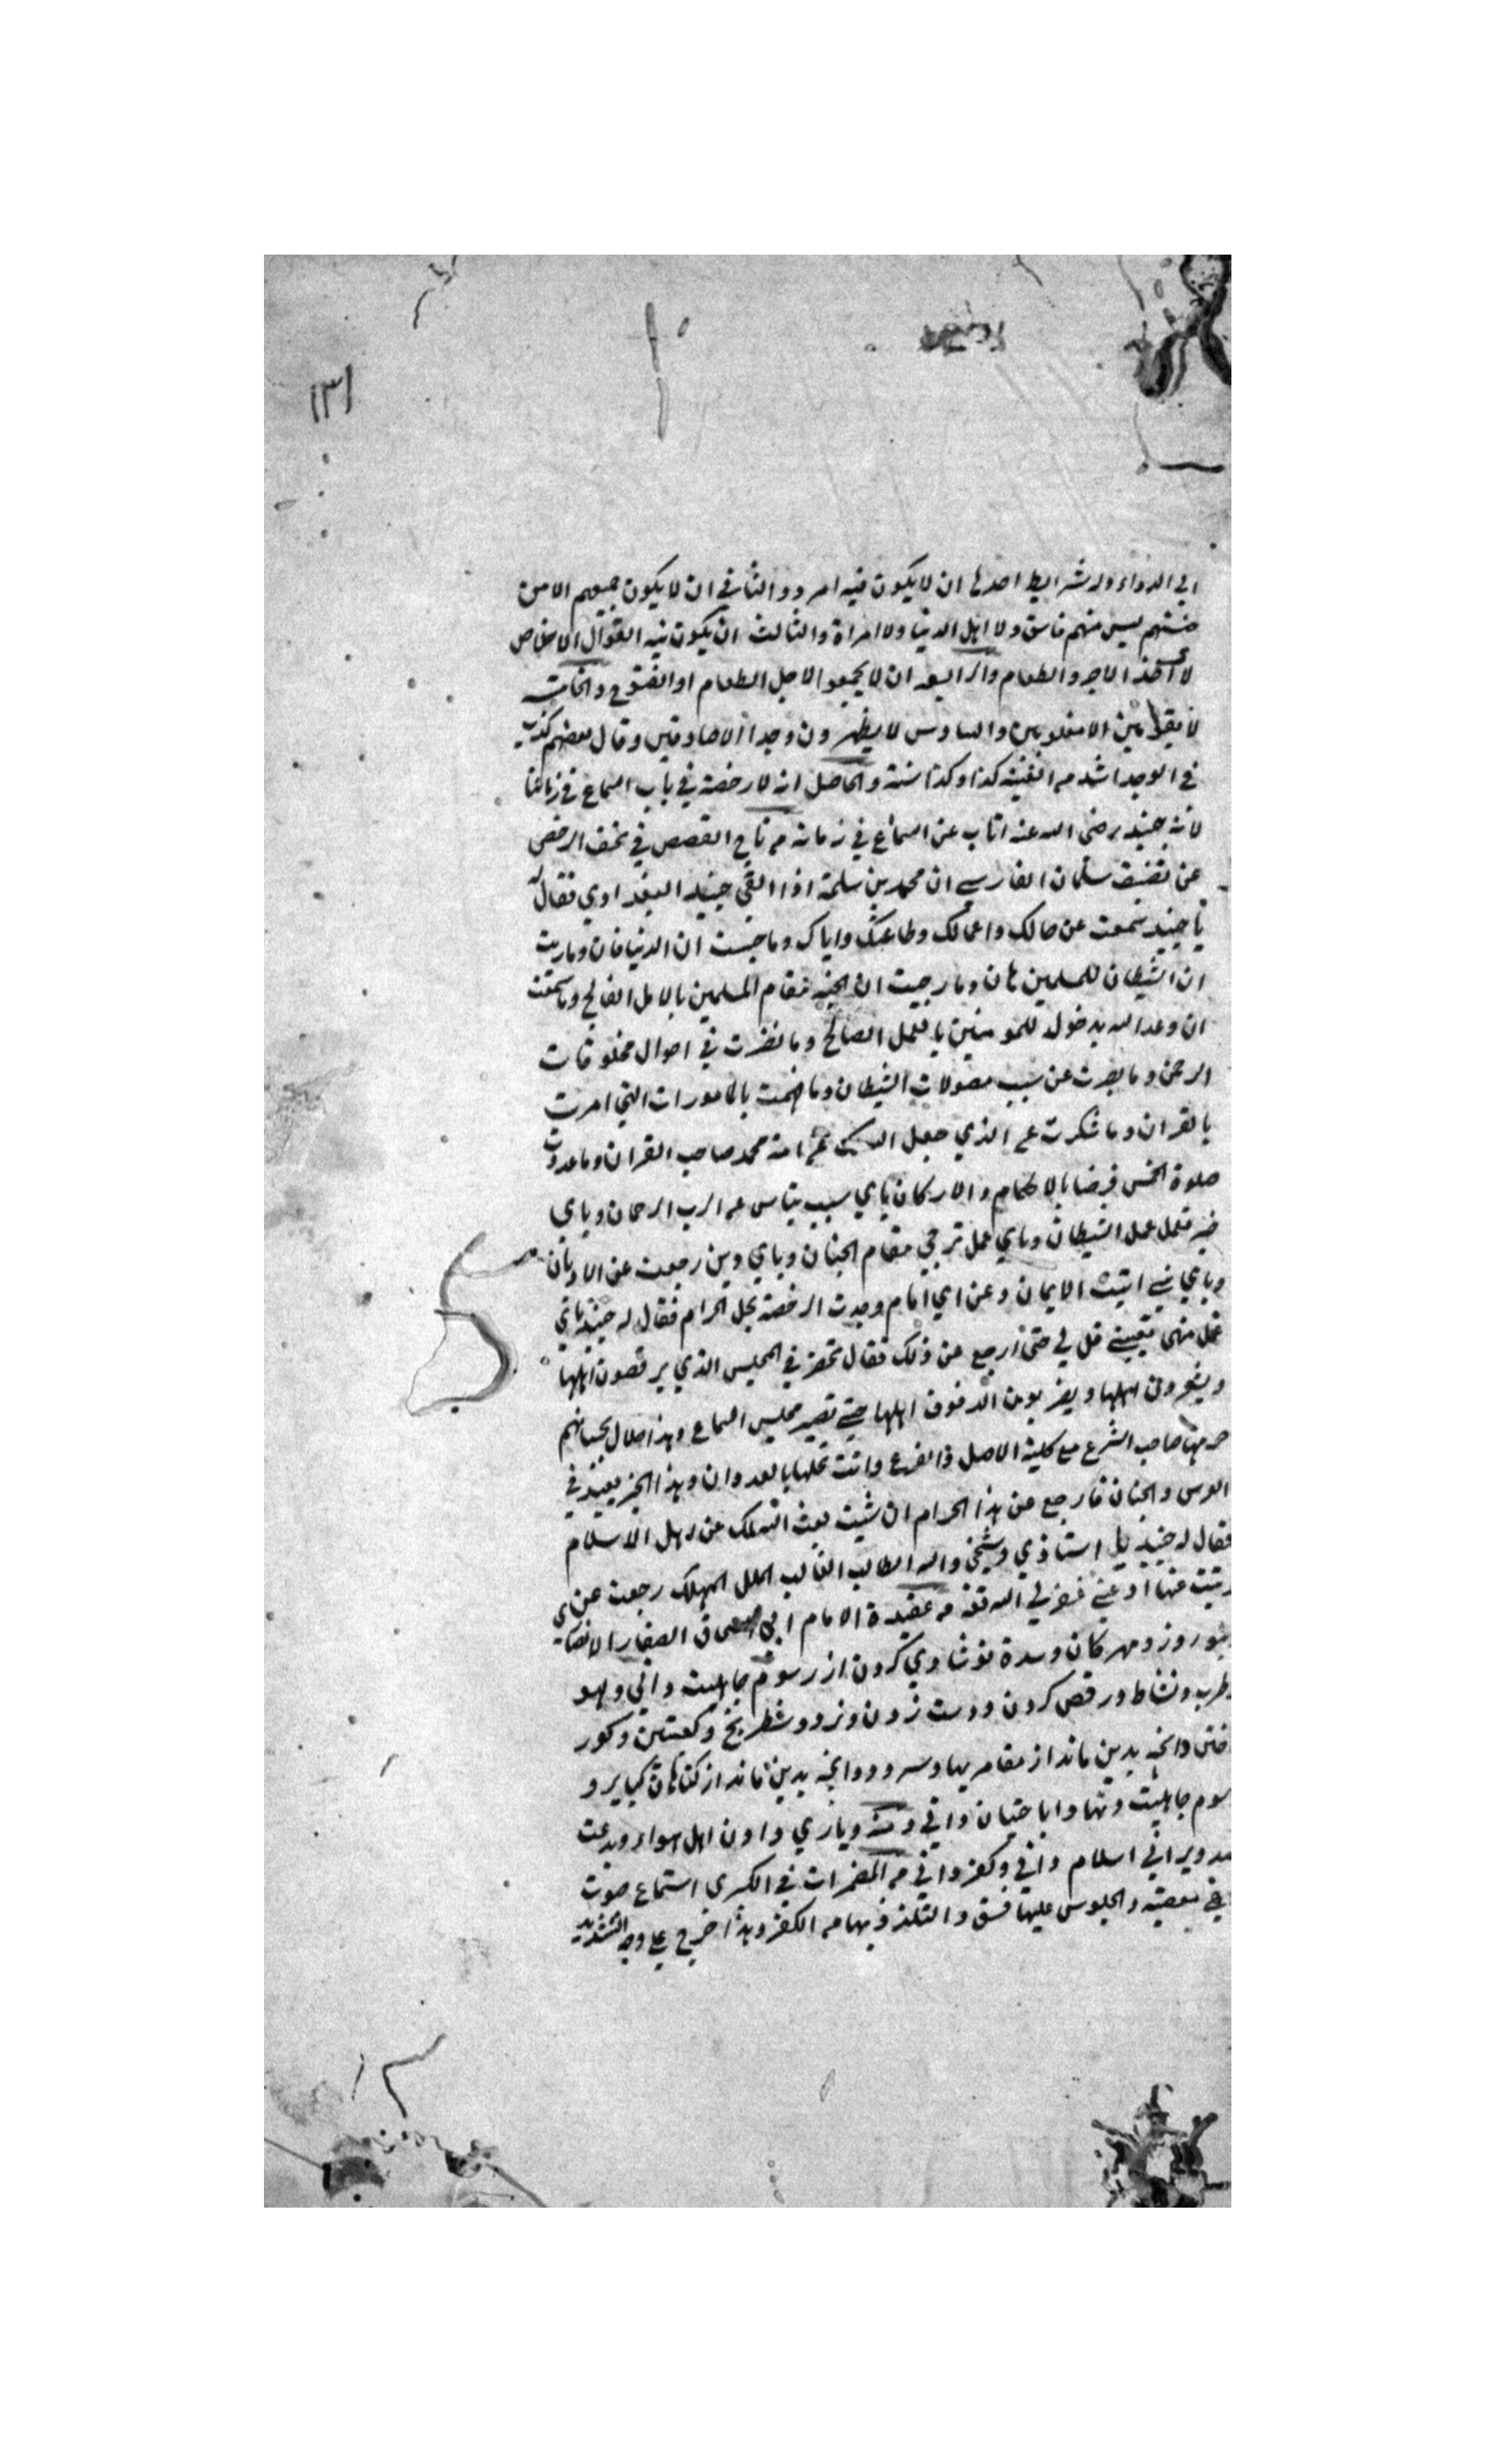 ١٣١
الى الدواء وله شرايط احدها ان لا يكون فيه امرد والثاني ان لا يكون جميعهم الا من
جنسهم ليس منهم فاسق ولا اهل الدنيا ولا امراة والثالث ان يكون نية القوال الاخلاص
لا اخذ الاجر والطعام والرابعة ان لا يجمعوا لاجل الطعام او الفتوح والخامسة
لا يقومون الا مغلوبين والسادس لا يظهرون وجدا الا صادقين وقال بعضهم كذب
في الوجد اشد من الغيبة كذا وكذا سنة والحاصل انه لا رخصة في باب السماع في زماننا
لانه جنيد رضى الله عنه اتاب عن السماع في زمانه من تاج القصص في نخف الرخص
عن تصنيف سلمان الفارسي ان محمد بن سلمة اذا القي جنيد البغدادي فقال له
يا جنيد سمعت عن حالك واعمالك وطاعتك واياك وما حسبت ان الدنيا فان وما ريت
ان الشيطان للمسلمين هان وما رجيت ان الجنة مقام المسلمين بالامل الفالح وما سمعت
ان وعد الله بدخوله للمومنين با فعل الصالح وما نظرت في احوال مخلوقات
الرحمن وما بصرت عن سبب معمولات الشيطان وما فهمت بالمامورات التي امرت
بالقران وما شكرت على الذي جعل الله لك من امة محمد صاحب القران وما عدوت
صلوة الخمس فرضا بالاحكام والاركان باي سبب يتاس من الرب الرحمان وباي
خبر فعمل عمل الشيطان وباي عمل ترجي مقام الجنان وباي دين رجعت عن الاديان
وباي نبي اتيت الايمان وعن اي امام وجدت الرخصة بحل الحرام فقال له جنيد باي
عمل منهى تعيبني قل لي حتى ارجع عن ذلك فقال تحضر في المجلس الذي يرقصون اهلها
ويشعرون اهلها ويضربون الدفوف اهلها حتى تصير مجلس السماع وهذا حلال بحسبانهم
حرمها صاحب الشرع مع كلية الاصل والفرع وانت تحلها بالعدوان وهذا الخبر بعيد في
الوس والجنان فارجع عن هذا الحرام ان شيت بعث الله لك عن اهل الاسلام
فقال له جنيد بل استاذي وشيخي والله الطالب الغالب الملك المهلك رجعت عن
وتبت عنها ادعني غفر لي الله تعالى من عقيدة الامام ابي اسحاق الصفار الانصاري
نوروز ومهركان وسده نوشادي كردن از رسوم جاهليت داني ولهو
وطرب ونشاط ورقص كردن ودست زدن ونرد وشطرنج وكعبتين وكور
ختن وانچه بدين ماند از مقامريها وسرود وانچه بدين ماند از گناهان كباير و
رسوم جاهليت وتنها واباحتيان داني ومنه وياري دادن اهل اهواء وبدعت
مد ويراني اسلام داني وكفر داني من المضمرات في الكبرى استماع صوت
هي معصية والجلوس عليها فسق والتلذذ بها من الكفر وهذا خرج على وجه التشديد